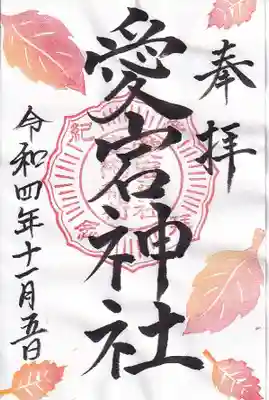 奉拝
愛宕神社
令和四年十一月五日